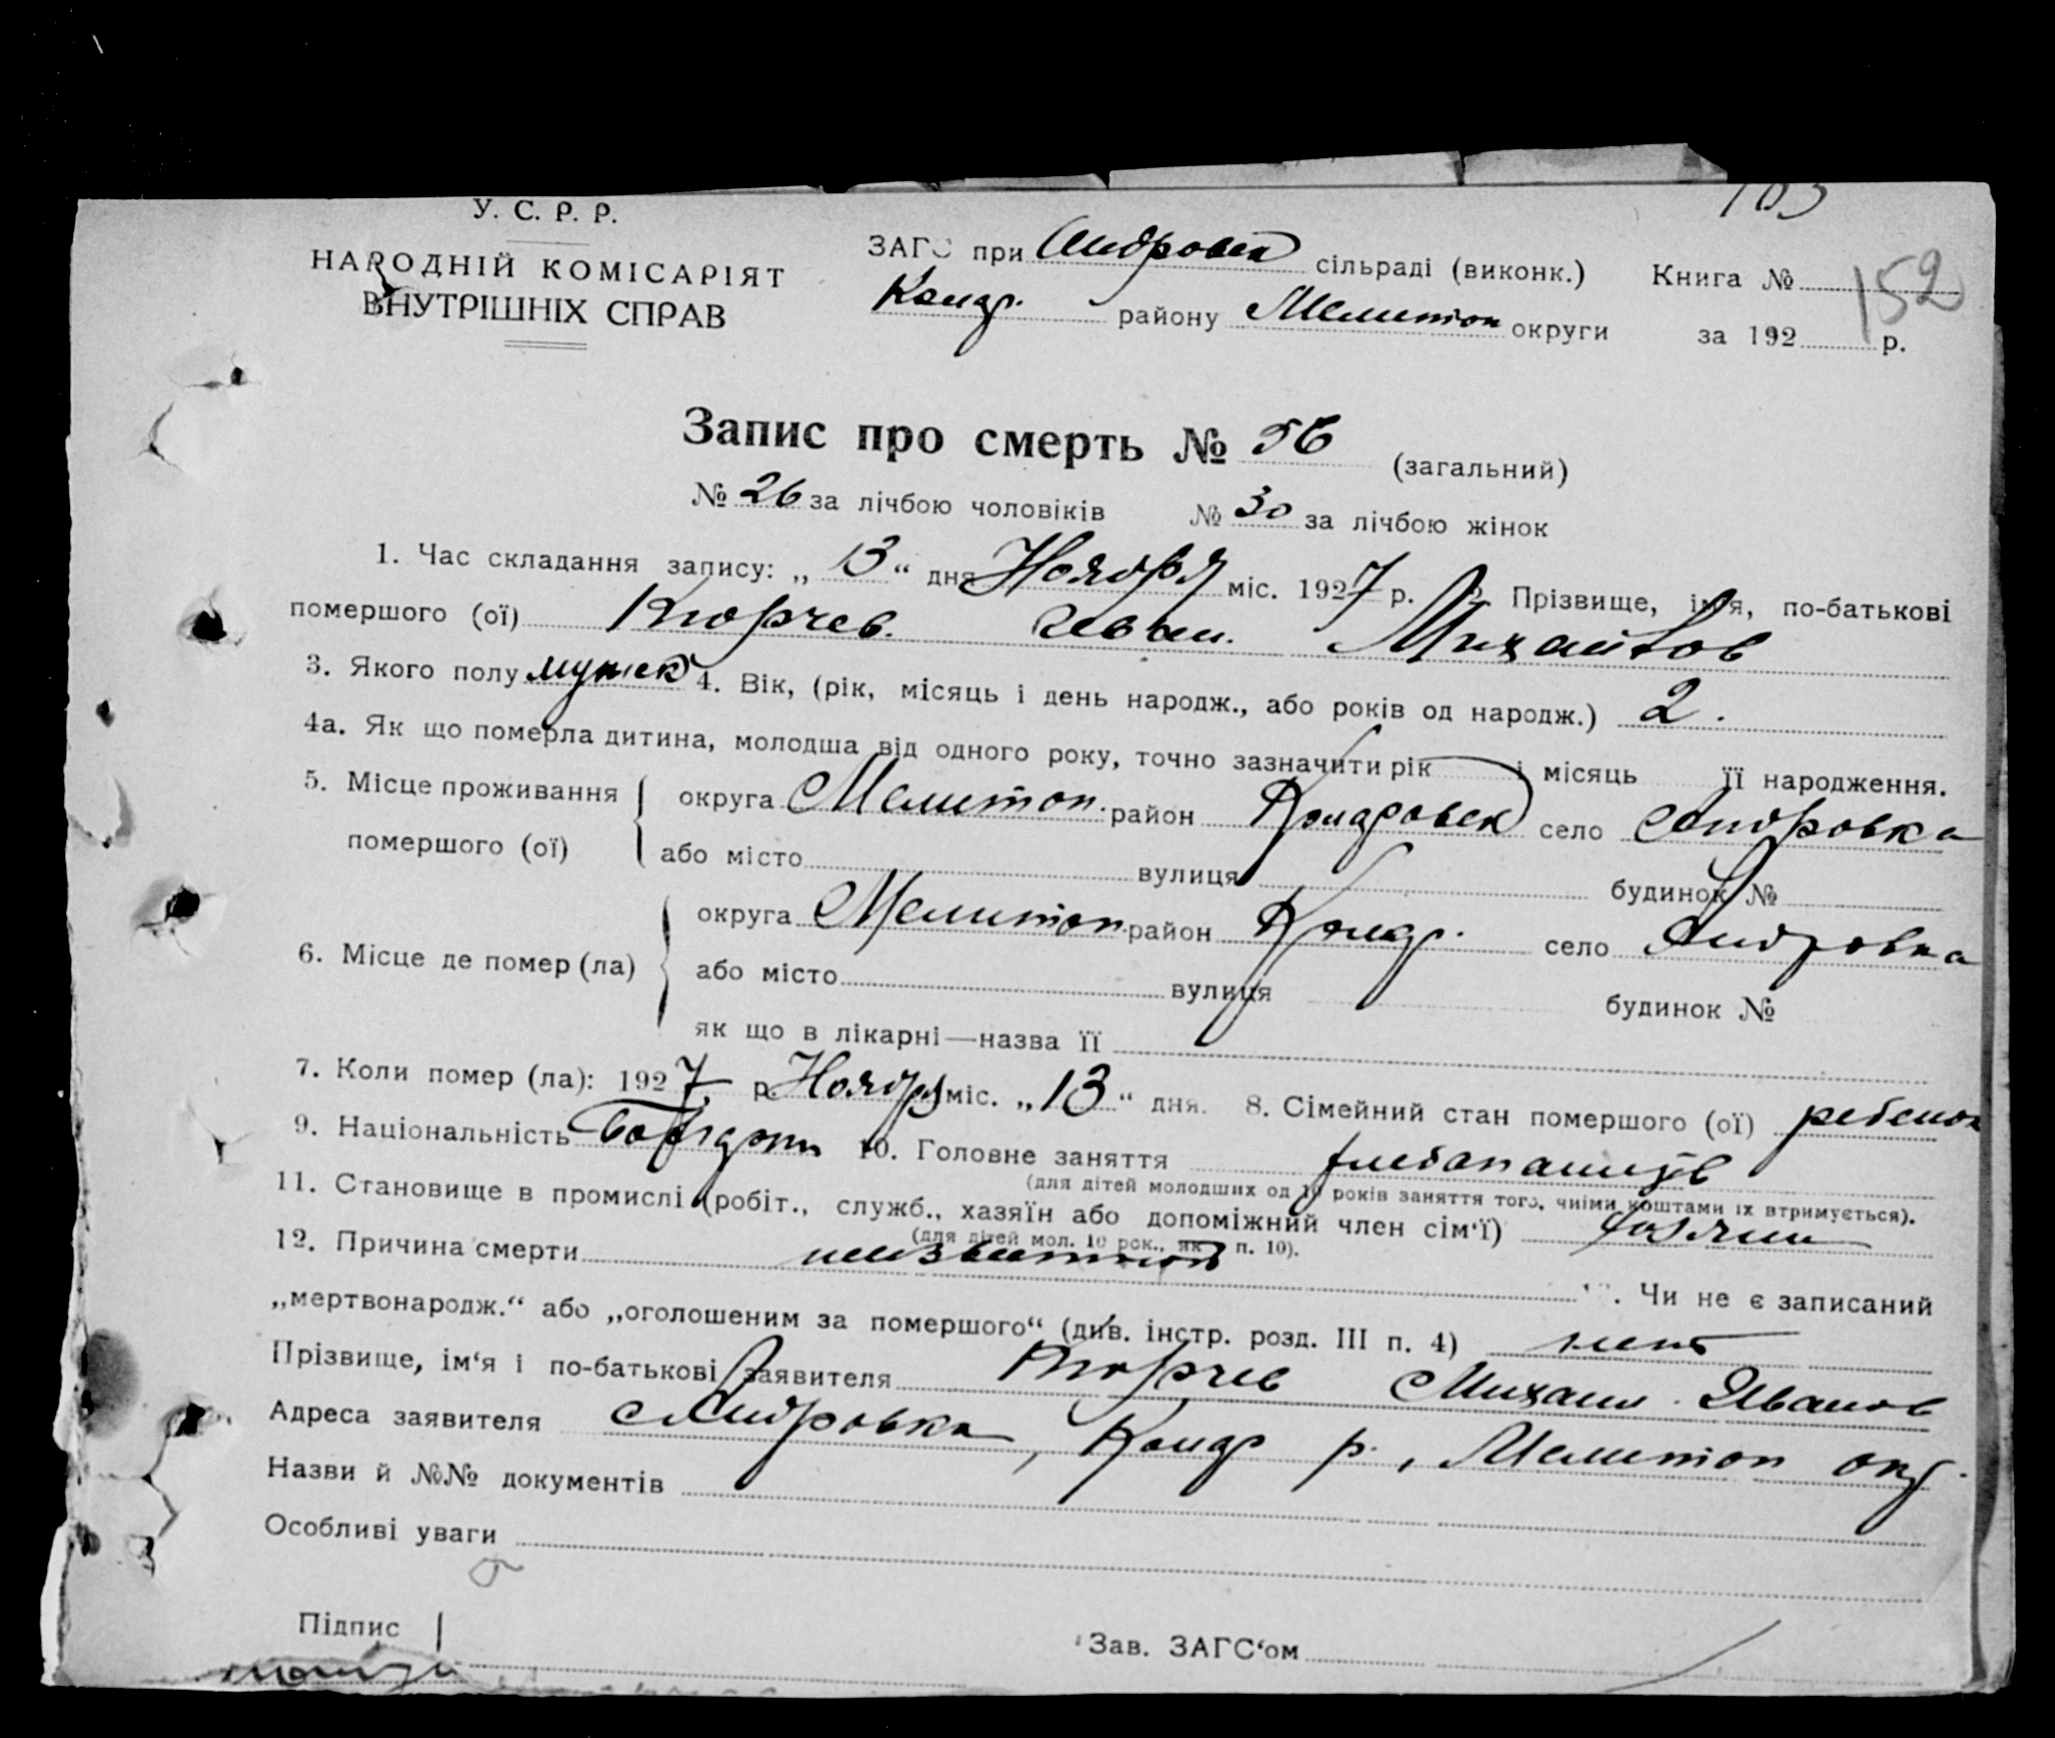 У. С. Р. Р.
НАРОДНІЙ КОМІСАРІЯТ
ВНУТРІШНІХ СПРАВ
ЗАГС при Андровск сільраді (виконк.) Книга №
152
Коларов. району Мелитоп округи за 192 р.
Запис про смерть № 56 (загальний)
№ 26 за лічбою чоловіків № 30 за лічбою жінок
1. Час складання запису: „ 13 “ дня Ноября міс. 1927 р. 2. Прізвище, ім'я, по-батькові
помершого (ої) Кюрчев. Михайлов
3. Якого полу мужск 4. Вік, (рік, місяць і день народж., або років од народж.) 2.
4а. Як що померла дитина, молодша від одного року, точно зазначити рік і місяць її народження.
5. Місце проживання округа Мелитоп. район село Андровка
помершого (ої) або місто вулиця будинок №
округа Мелитоп. район село Андровка
6. Місце де помер (ла) або місто вулиця будинок №
як що в лікарні—назва її
7. Коли помер (ла): 1927 р. Ноября міс. „ 13 “ дня. 8. Сімейний стан помершого (ої) ребенок
9. Національність Болгарин 10. Головне заняття хлебопашцев
(для дітей молодших од 10 років заняття того, чиїми коштами їх втримується).
11. Становище в промислі (робіт., служб., хазяїн або допоміжний член сім'ї) хозяин
(для дітей мол. 10 рок., як п. 10).
12. Причина смерти неизвестной . Чи не є записаний
„мертвонародж.“ або „оголошеним за помершого“ (див. інстр. розд. III п. 4) нет
Прізвище, ім'я і по-батькові заявителя Кюрчев Михаил Иванов
Адреса заявителя Андровка, р., Мелитоп окр.
Назви й №№ документів
Особливі уваги
Підпис
Зав. ЗАГС'ом